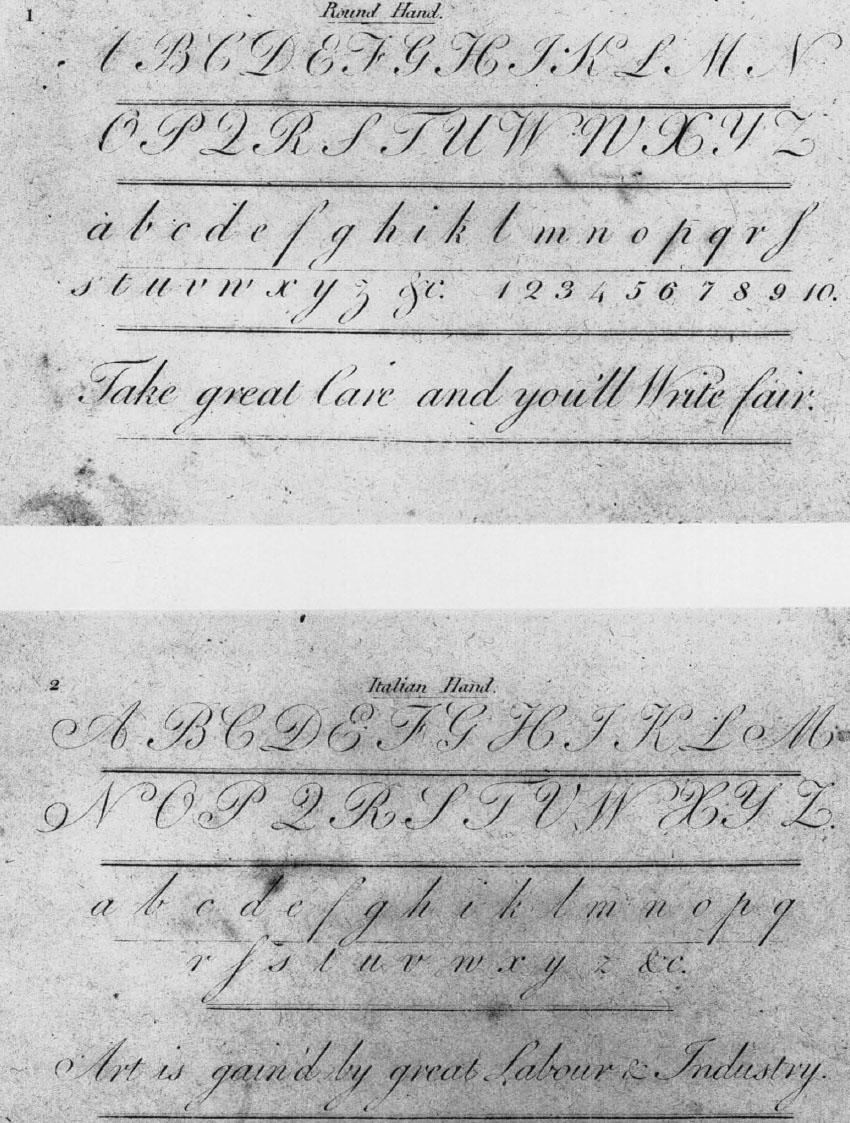 1
Round Hand.
A B C D E F G H I K L M N
O P Q R S T U W W X Y Z
a b c d e f g h i k l m n o p q r ſ
s t u v w x y z &c. 1 2 3 4 5 6 7 8 9 10.
Take great Care and you'll Write fair.
2
Italian Hand.
A B C D E F G H I K L M
N O P Q R S T V W X Y Z.
a b c d e f g h i k l m n o p q
r ſ s t u v w x y z &c.
Art is gain'd by great Labour & Industry.